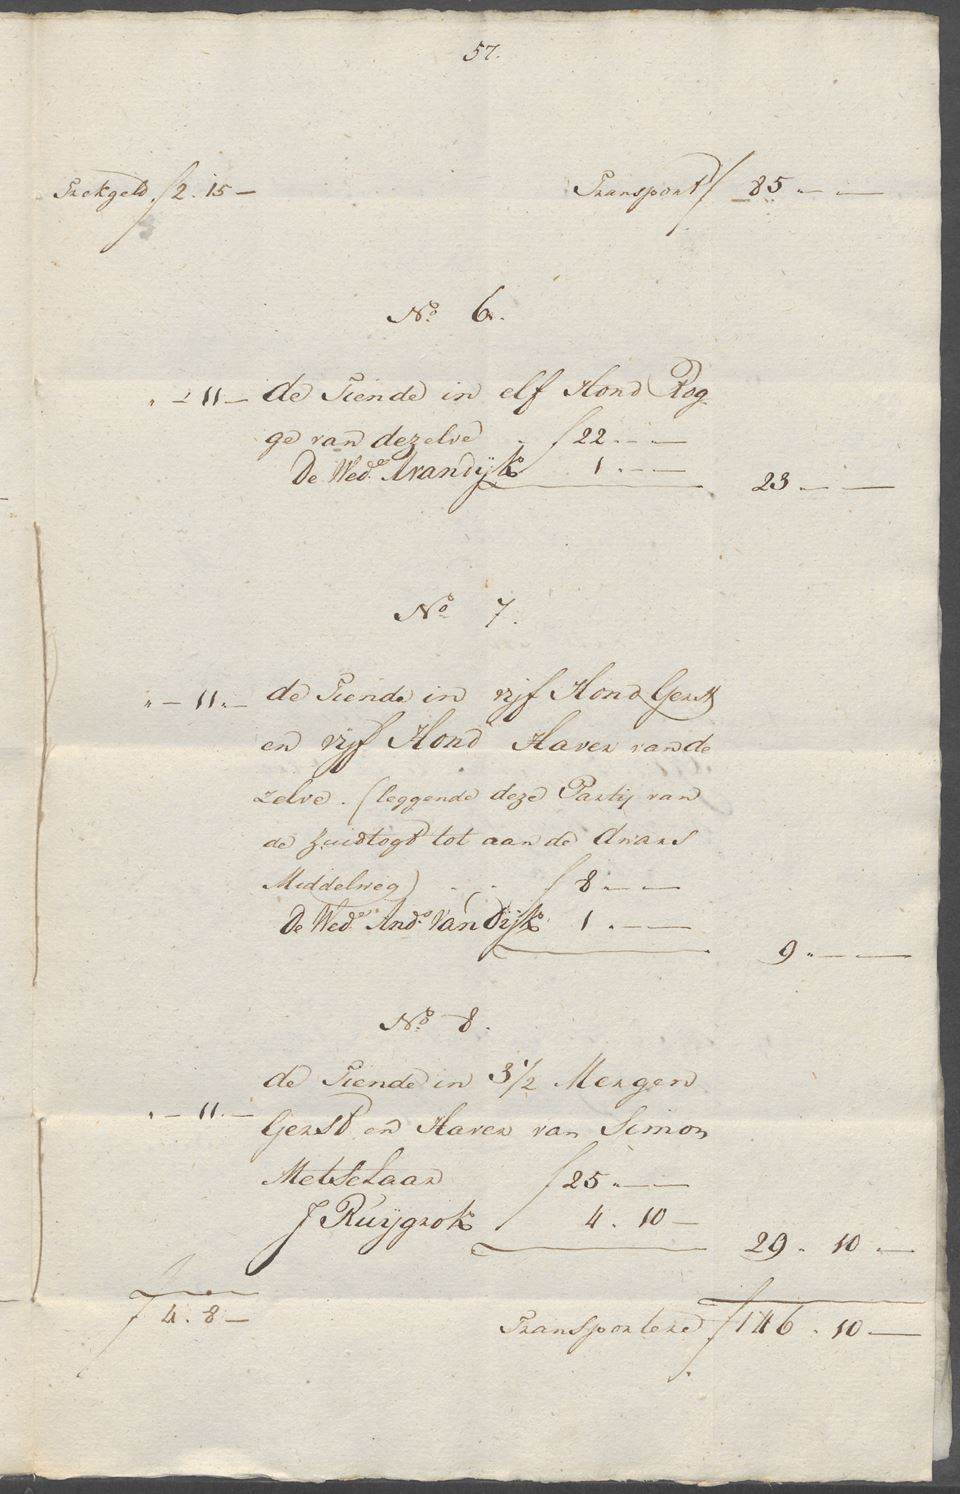 57.
Trekgeld ƒ 2. 15 —
Transport ƒ 85 „ — —
No 6.
„ — 11 — de Tiende in elf Hond Rog
ge van dezelve . ƒ 22 . — —
De Wede. Avandijk 1 . — —
23 „ — —
No 7.
„ — 11 „ — de Tiende in vijf Hond Gerst
en vijf Hond Haver van de
zelve . (leggende deze Partij van
de zuidtogt tot aan de dwars
Middelweg) . . ƒ 8 „ — —
De Wede. And. Van Dijk 1 „ — —
9 „ — —
No 8.
de Tiende in 3 1/2 Mergen
„ — 11 . — Gerst en Haver van Simon
Metselaar ƒ 25 „ — —
J Ruijgrok 4 . 10 —
29 „ 10 „ —
ƒ 4 . 8 —
Transportere ƒ 146 „ 10 —